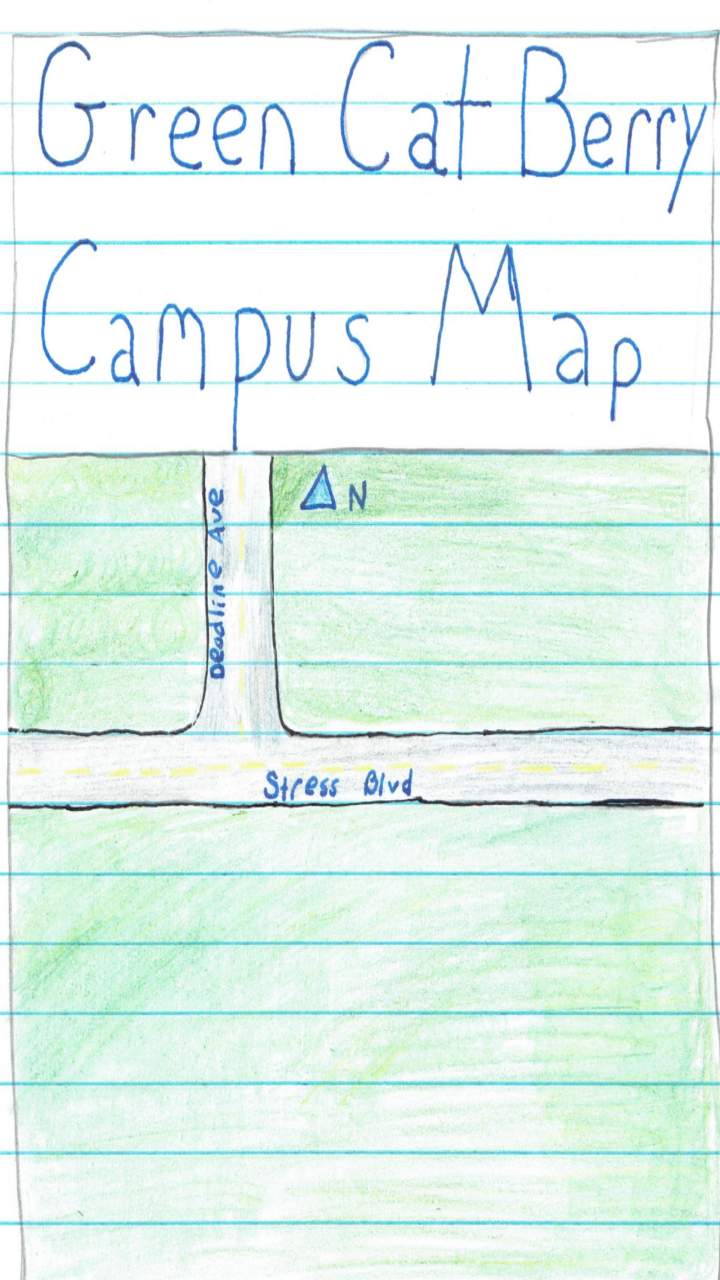 Green Cat Berry
Campus Map
N
Deadline Ave
Stress Blvd